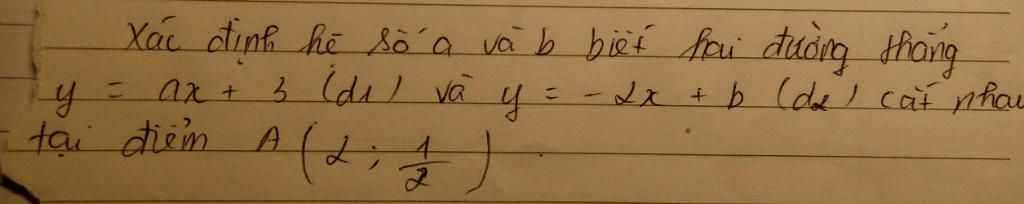 Xác định hệ số a và b biết hai đường thẳng
y = ax + 3 (d1) và y = -2x + b (d2) cắt nhau
tại điểm A (2; 1/2)